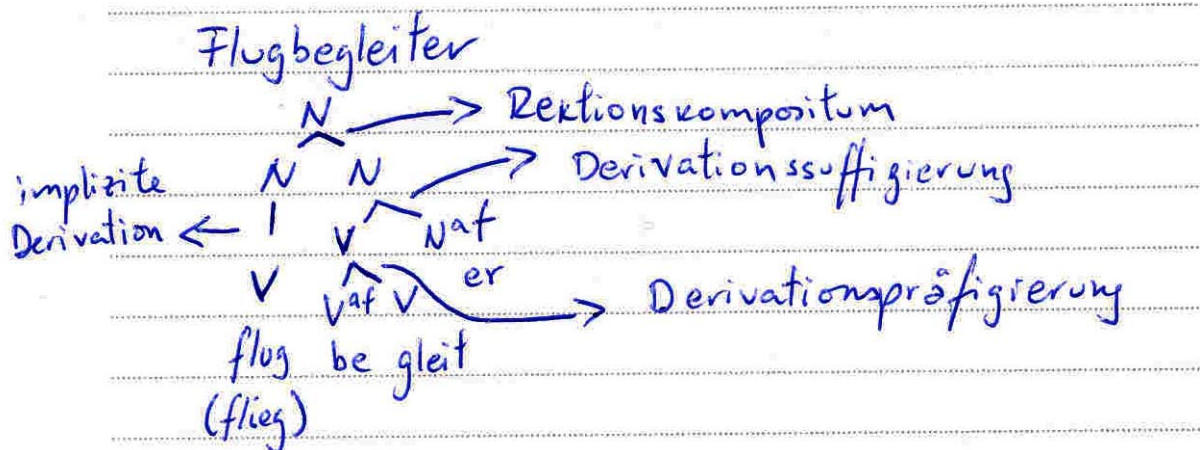 Flugbegleiter
N → Rektionskompositum
implizite N N → Derivationssuffigierung
Derivation ← V Naf
V Vaf V er → Derivationspräfigierung
flug be gleit
(flieg)